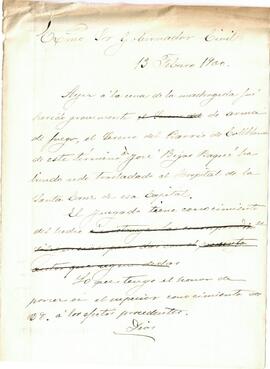 Exmo Sor Gobernador Civil
13 Febrero 1900.
Ayer á la una de la madrugada fué
herido gravemente de arma
de fuego, el Sereno del Barrio de
de este término José Bojas ha
biendo sido trasladado al Hospital de la
Santa Cruz de esa Capital.
El juzgado tiene conocimiento
del hecho
Lo que tengo el honor de
poner en el superior conocimiento de
V.E. á los efectos procedentes.
Dios